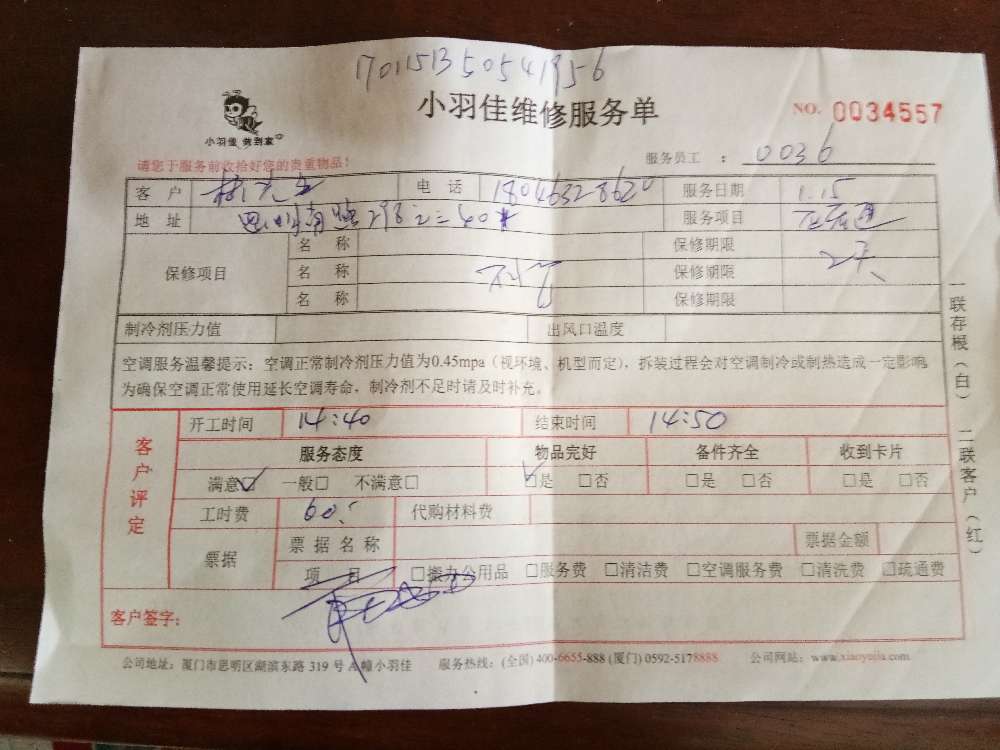 17011513505541956
小羽佳维修服务单
NO. 0034557
小羽佳 做到家
请您于服务前收拾好您的贵重物品！
服务员工 ： 0036
客 户 电 话 18046328620 服务日期 1.15
地 址 服务项目
保修项目 名 称 保修期限
名 称 保修期限 2天
名 称 保修期限
制冷剂压力值 出风口温度
空调服务温馨提示：空调正常制冷剂压力值为0.45mpa（视环境、机型而定），拆装过程会对空调制冷或制热造成一定影响
为确保空调正常使用延长空调寿命，制冷剂不足时请及时补充。
客户评定
开工时间 14:40 结束时间 14:50
服务态度 物品完好 备件齐全 收到卡片
满意□ 一般□ 不满意□ □是 □否 □是 □否 □是 □否
工时费 60 代购材料费
票据 票据名称 票据金额
项 目 □搬办公用品 □服务费 □清洁费 □空调服务费 □清洗费 □疏通费
客户签字：
公司地址：厦门市思明区湖滨东路 319 号 A 幢小羽佳 服务热线：(全国) 400-6655-888 (厦门) 0592-5178888 公司网站：www.xiaoyujia.com
一联存根（白） 二联客户（红）